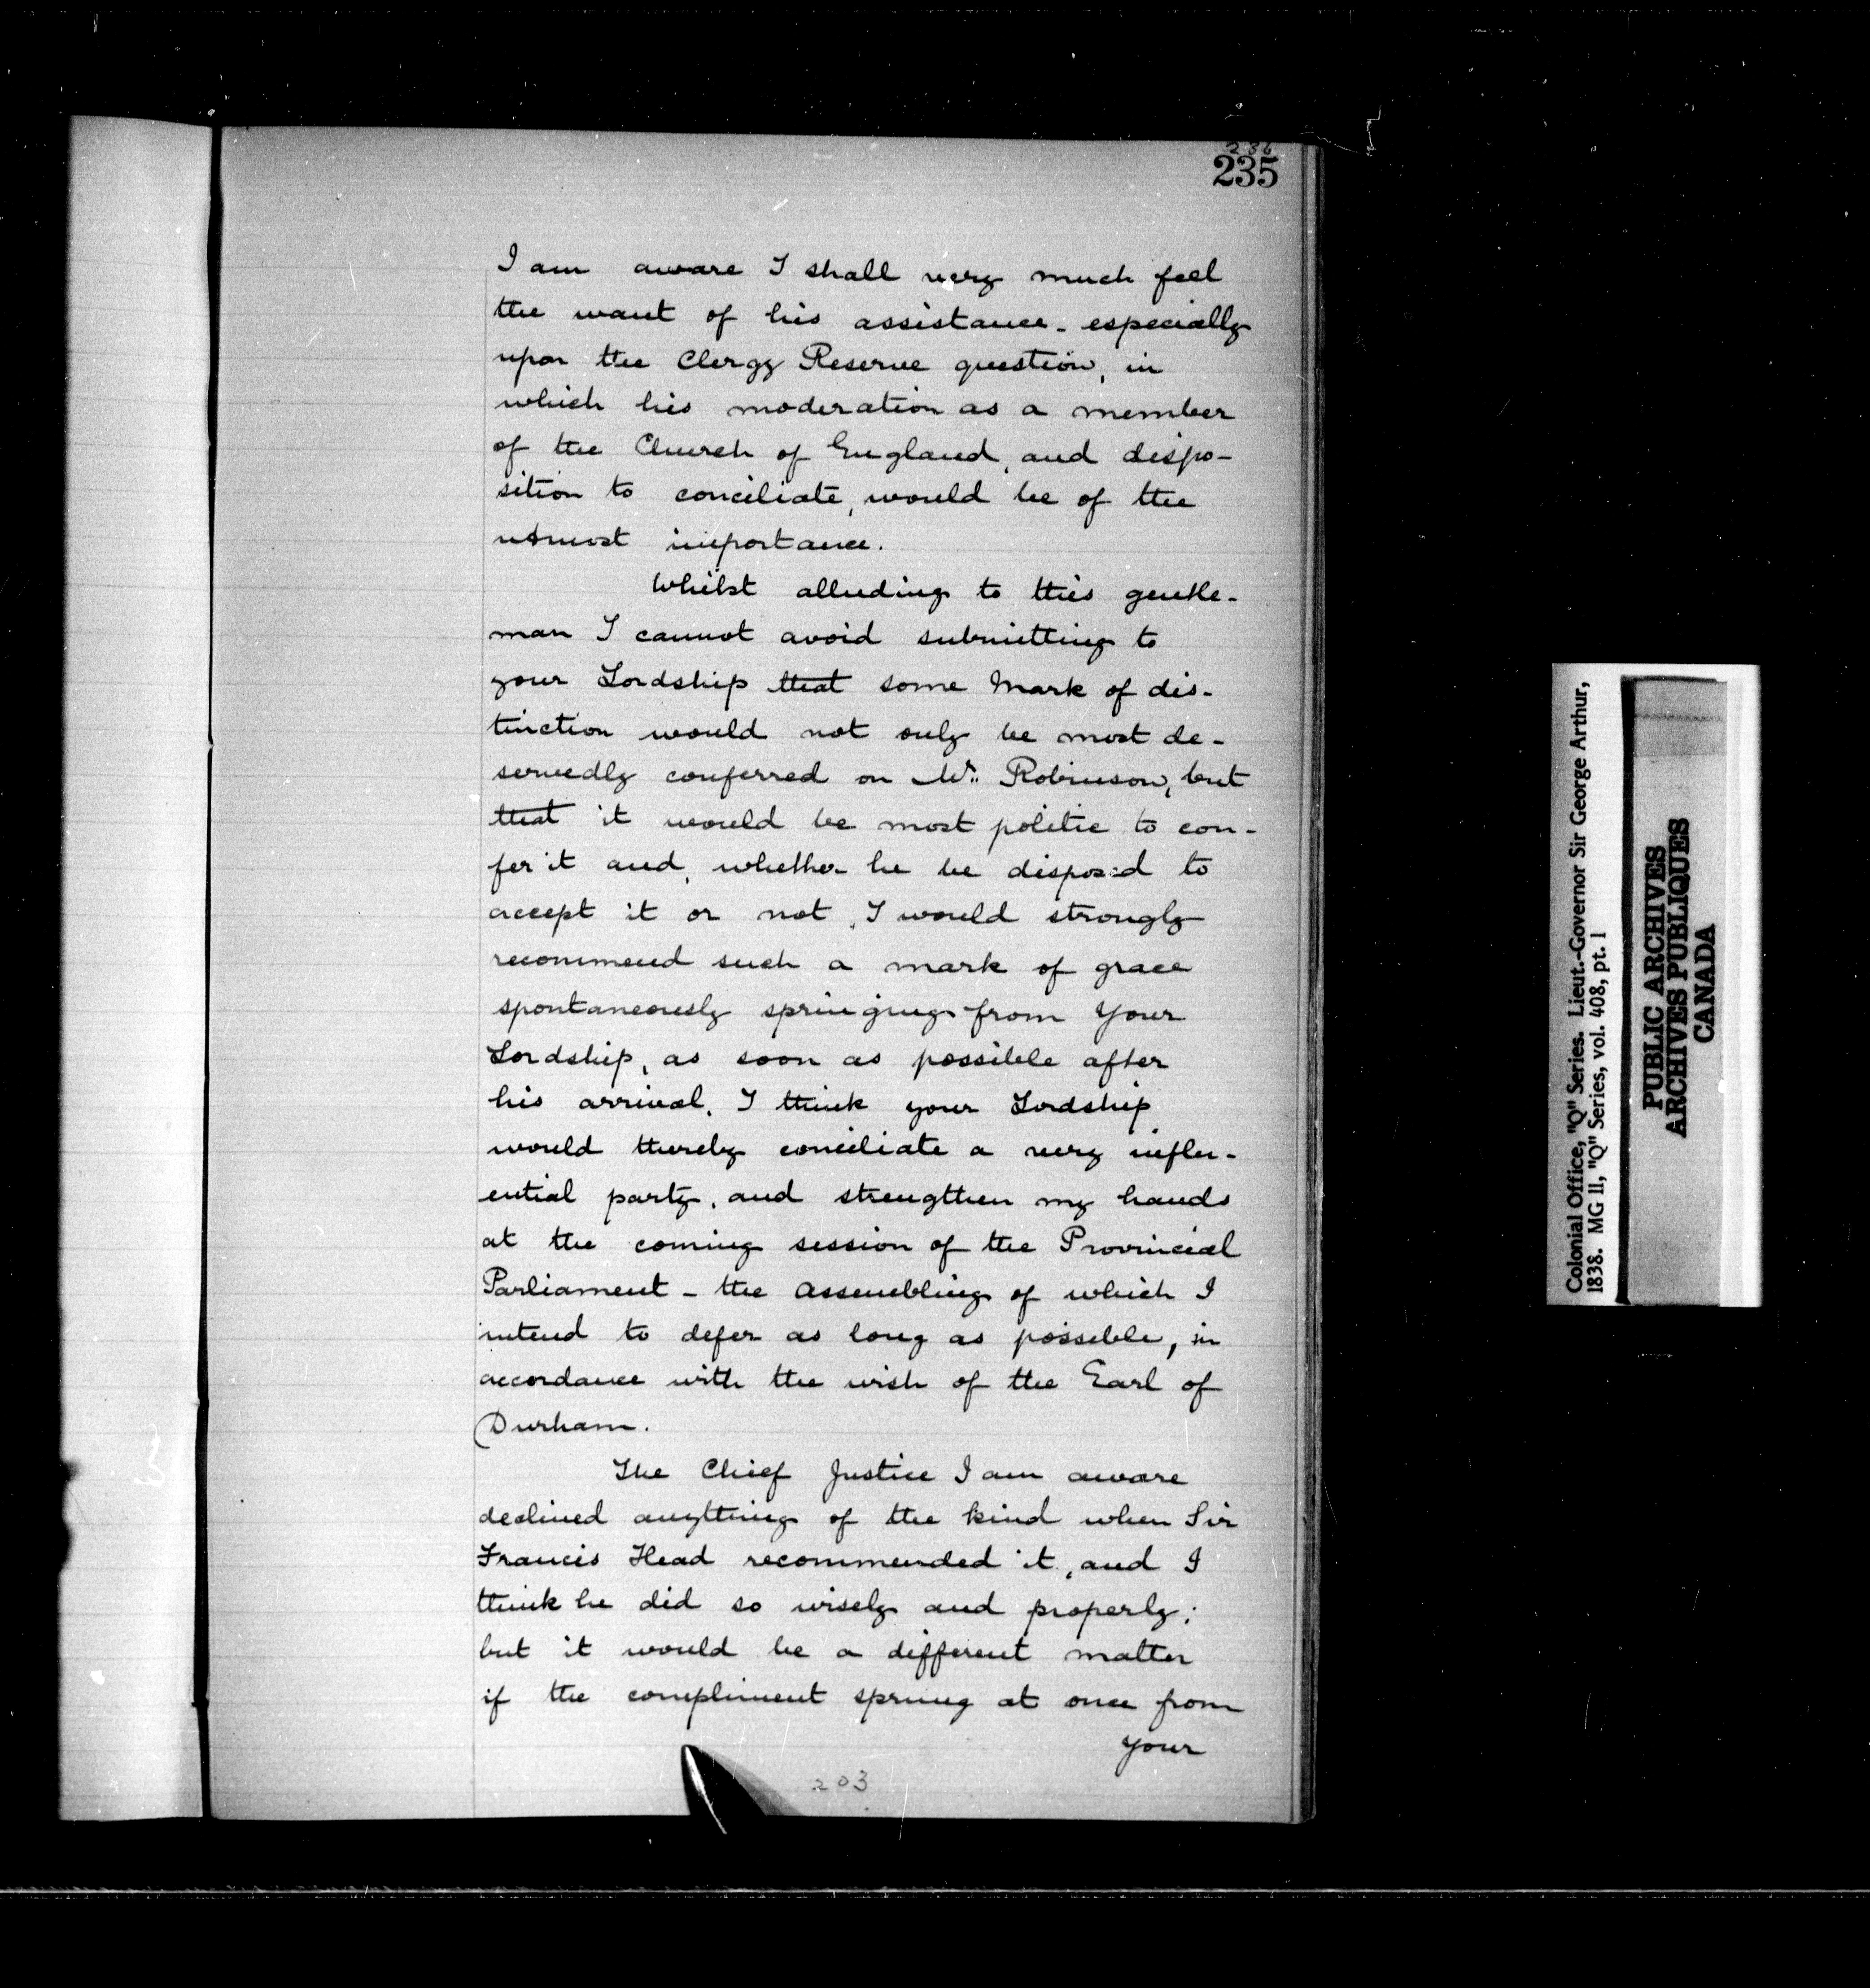 236
235
I am aware I shall very much feel
the want of his assistance - especially
upon the Clergy Reserve question, in
which his moderation as a member
of the Church of England, and dispo-
sition to conciliate, would be of the
utmost importance.
Whilst alluding to this gentle-
man I cannot avoid submitting to
your Lordship that some Mark of dis-
tinction would not only be most de-
servedly conferred on Mr. Robinson, but
that it would be most politic to con-
fer it and, whether he be disposed to
accept it or not, I would strongly
recommend such a mark of grace
spontaneously springing from Your
Lordship, as soon as possible after
his arrival. I think your Lordship
would thereby conciliate a very influ-
ential party, and strengthen my hands
at the coming session of the Provincial
Parliament - the assembling of which I
intend to defer as long as possible, in
accordance with the wish of the Earl of
Durham.
The Chief Justice I am aware
declined anything of the kind when Sir
Francis Head recommended it, and I
think he did so wisely and properly;
but it would be a different matter
if the compliment sprung at once from
your
203
Colonial Office, "Q" Series. Lieut.-Governor Sir George Arthur,
1838. MG 11, "Q" Series, vol. 408, pt. 1
PUBLIC ARCHIVES
ARCHIVES PUBLIQUES
CANADA